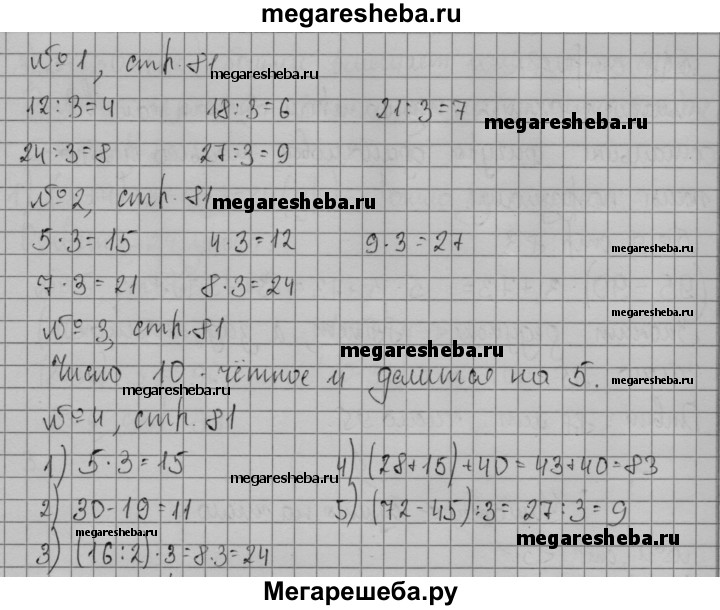 megaresheba.ru
№ 1, стр. 81 megaresheba.ru
12 : 3 = 4 18 : 3 = 6 21 : 3 = 7 megaresheba.ru
24 : 3 = 8 27 : 3 = 9
№ 2, стр. 81 megaresheba.ru
5 · 3 = 15 4 · 3 = 12 9 · 3 = 27 megaresheba.ru
7 · 3 = 21 8 · 3 = 24
megaresheba.ru
№ 3, стр. 81
megaresheba.ru
Число 10 - чётное и делится на 5. megaresheba.ru
megaresheba.ru
№ 4, стр. 81
1) 5 · 3 = 15 4) (28 + 15) + 40 = 43 + 40 = 83
megaresheba.ru
2) 30 - 19 = 11 5) (72 - 45) : 3 = 27 : 3 = 9
megaresheba.ru megaresheba.ru
3) (16 : 2) · 3 = 8 · 3 = 24
Мегарешеба.ру